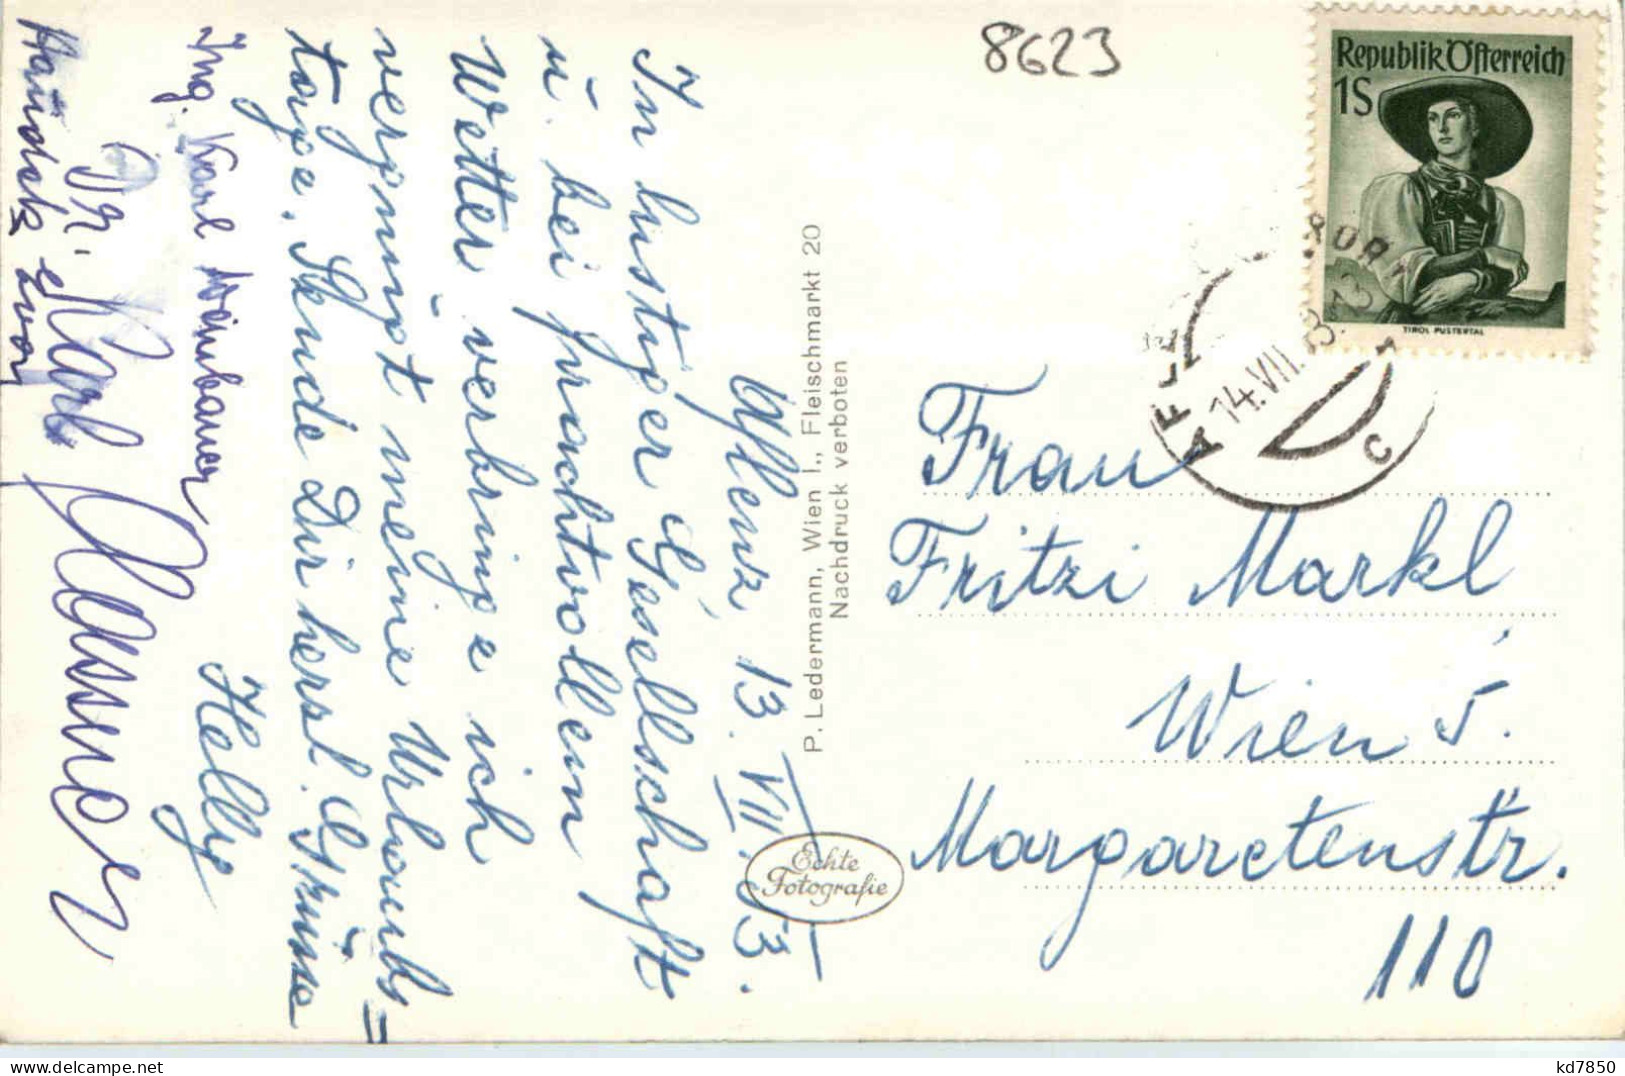 8623
Republik Österreich
1S
TIROL PUSTERTAL
AFLE
14.VII.
C
Aflenz, 13. VII. 53.
In lustiger Gesellschaft
u. bei prachtvollem
Wetter verbringe ich
vergnügt meine Urlaubs=
tage. Sende Dir herzl. Grüsse
Helly
Ing. Karl Weinbauer
Dr. Karl
Handsk
P. Ledermann, Wien I., Fleischmarkt 20
Nachdruck verboten
Echte
Fotografie
Frau
Fritzi Markl
Wien 5.
Margaretenstr.
110
kd7850